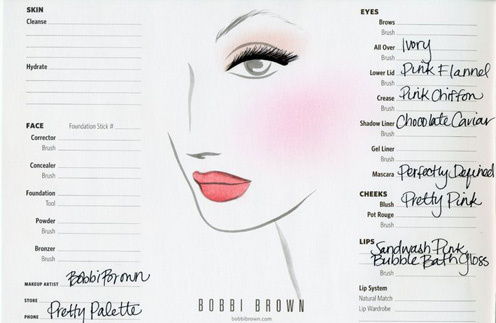 SKIN
Cleanse
Hydrate
FACE Foundation Stick #
Corrector
Brush
Concealer
Brush
Foundation
Tool
Powder
Brush
Bronzer
Brush
MAKEUP ARTIST BobbiBrown
STORE Pretty Palette
PHONE
BOBBI BROWN
bobbibrown.com
EYES
Brows
Brush
All Over Ivory
Brush
Lower Lid Pink Flannel
Brush
Crease Pink Chiffon
Brush
Shadow Liner Chocolate Caviar
Brush
Gel Liner
Brush
Mascara Perfectly Defined
CHEEKS
Blush Pretty Pink
Pot Rouge
Brush
LIPS Sandwash Pink
Bubble Bath Gloss
Brush
Lip System
Natural Match
Lip Wardrobe